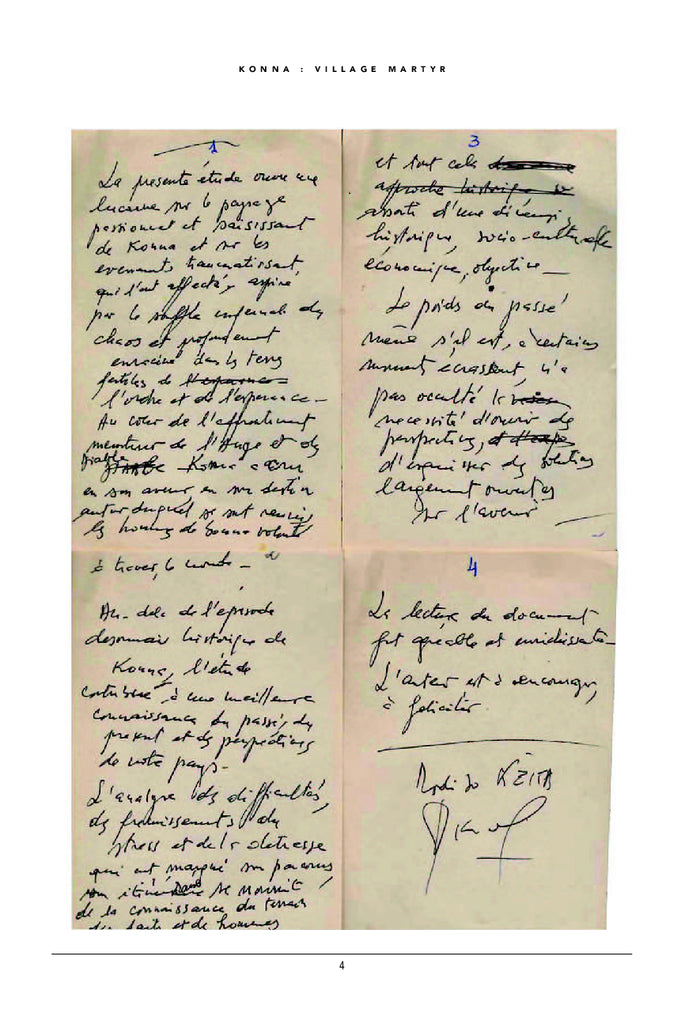 KONNA : VILLAGE MARTYR
1
La presente étude ouvre une
lucarne sur le paysage
passionnant et saisissant
de Konna et sur les
evenements traumatissant,
qui l'ont affecté, aspiré
par le souffle infernal du
chaos et profondement
enraciné dans les terres
fertiles de
l'ordre et de l'esperance -
Au cœur de l'affrontement
meurtrier de l'Ange et du
Diable Konna a cru
en son avenir, en son destin
autour duquel se sont reunis
les hommes de bonne volonté
à travers le monde -
2
Au-delà de l'episode
desormais historique de
Konna, l'étude
contribue à une meilleure
connaissance du passé, du
present et des perspectives
de notre pays -
L'analyse des difficultés,
des fremissements du
stress et de la detresse
qui ont marqué son parcours
son se nourrit
de la connaissance du terrain
des faits et de hommes
3
et tout cela
approche historique se
assorti d'une
historique, socio-culturelle
économique, objective -
Le poids du passé
même s'il est, à certains
moment écrasant, n'a
pas occulté la
necessité d'ouvrir de
perspectives,
d'esquisser des solutions
largement ouvertes
sur l'avenir
4
La lecture du document
fut agréable et enrichissante -
L'auteur est à encourager,
à feliciter.
KEITA
4